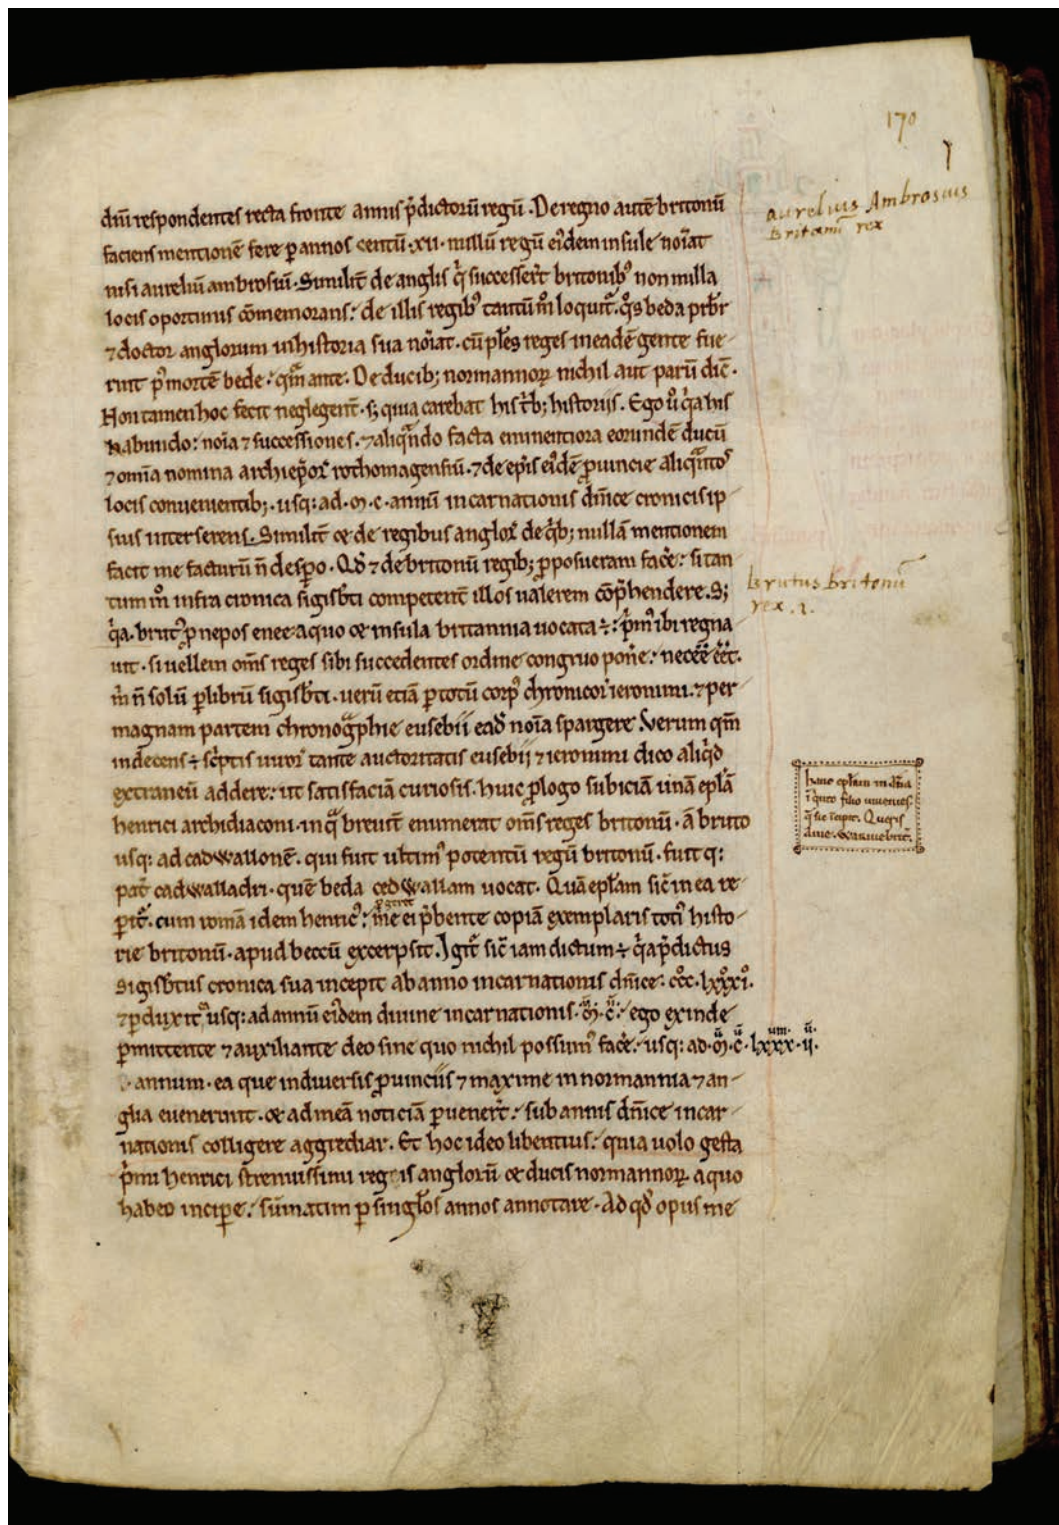 170
dñi respondentes recta fronte annis p̄dictorū regū. De regno autē britonū
faciens mentionē fere ꝑ annos centū .xii. nullū regū eiꝰdem insule noīat
nisi aureliū ambrosiū. Similit̄ de anglis q̇ successer̄t britonibꝰ non nulla
locis oportunis cōmemorans: de illis regibꝰ tantūm̊ loquit̄. q̊s beda prb̄r
⁊ doctor anglorum in historia sua noīat. cū pl̄es reges in eadē gente fue-
runt p̊ mortē bede: qm̄ ante. De ducib; normannoꝝ nichil aut parū dic̄.
Non tamen hoc fecit neglegent̄. s; quia carebat his t̄b; historiis. Ego ů q̇a his
habundo: noīa ⁊ successiones. ⁊ aliqn̄do facta eminentiora eorundē ducū
⁊ omīa nomina archiep̄oꝝ rothomagensiū. ⁊ de ep̄is eiꝰdē ꝓuincie aliq̄ntos
locis conuenientib;. usq: ad .ɱ.c. annū incarnationis dn̄ice cronicis ip-
sius interserens. Similit̄ ⁊ de regibus angloꝝ de q̇b; nullā mentionem
facit me facturū n̄ despo. Qd̄ ⁊ de britonū regib; ꝓposueram facēe: si tan
tum m̊ infra cronica sigisb̄ti competent̄ illos ualerem cōp̄hendere. S;
q̇a brutꝰ ꝓnepos enee a quo ⁊ insula britannia uocata ÷: p̊mꝰ ibi regna
uit. si uellem om̄s reges sibi succedentes ordine congruo pon̄e: necēē eēt.
m̊ n̄ solū ꝑ librū sigisb̄ti. uerū etiā ꝑ totū corpꝰ chronicoꝝ ieronimi. ⁊ per
magnam partem chronogͣphie eusebii ead̄ noīa spargere. Verum qm̄
indecens ÷ sc̊ptis uiroꝝ tante auctoritatis eusebii ⁊ ieronimi dico aliq̇d
extraneū addere: ut satisfaciā curiosis. huic ꝓlogo subiciā unā epl̄ā
henrici archidiaconi. in qͣ breuit̄ enumerat om̄s reges britonū. a bruto
usq: ad cadwallonē. qui fuit ultimꝰ potentū regū britonū. fuit q:
pat̄ cadwalladri. quē beda cedwallam uocat. Quā epl̄am sic̄ in ea re-
ꝑit̄. cum romā idem henricꝰ
ei p̄bente copiā exemplaris totiꝰ histo-
rie britonū. apud beccū excerpsit. Igit̄ sic̄ iam dictum ÷ q̇a p̄dictus
sigisb̄tus cronica sua incepit ab anno incarnationis dn̄ice. ccc̊. lxxx̊i̊.
⁊ ꝑduxit usq: ad annū eiꝰdem diuine incarnationis. ɱ. c̄: ego exinde
ꝑmittente ⁊ auxiliante deo sine quo nichil possumꝰ facēe: usq: ad .ɱ.c̄. lxxx.ii.
annum. ea que in diuersis ꝓuinciis ⁊ maxime in normannia ⁊ an-
glia euenerunt. ⁊ ad meā noticiā ꝑuener̄t: sub annis dn̄ice incar-
nationis colligere aggrediar. Et hoc ideo libentius: quia uolo gesta
p̊mi henrici strenuissimi regis anglorū ⁊ ducis normannoꝝ a quo
habeo incipe: sūmatim ꝑ singl̄os annos annotare. Ad qd̄ opus me
aurelius Ambrosius
Britanū rex
Brutus britonū
rex .1.
hanc epl̄am